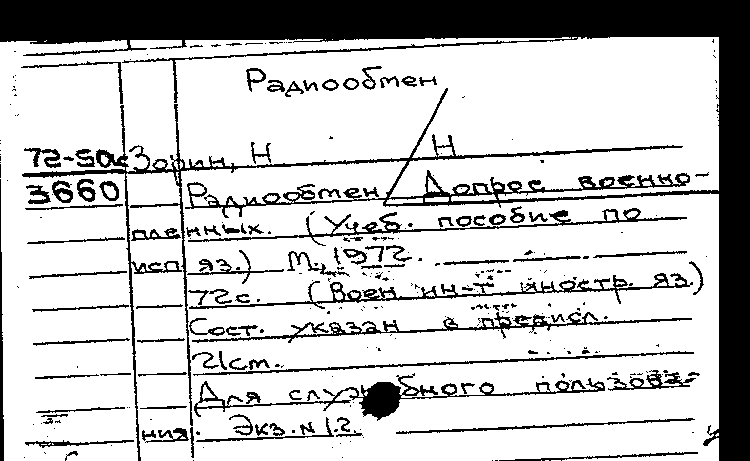 Радиообмен
72-50с Зорин, Н Н
3660 Радиообмен. Допрос военно-
пленных. (Учеб. пособие по
исп. яз.) М., 1972.
72с. (Воен ин-т иностр. яз.)
Сост. указан в предисл.
21см.
Для служебного пользова-
ния. Экз. N 12.